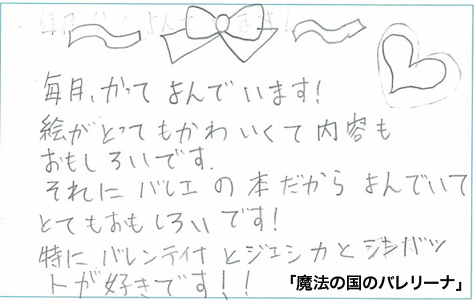 毎月、かって よんで います!
絵が とっても かわいくて 内容も
おもしろいです.
それに バレエ の 本 だから よんでいて
とてもおもしろい です!
特に バレンティナ と ジェシカ と
トが 好き です!!
「魔法の国のバレリーナ」